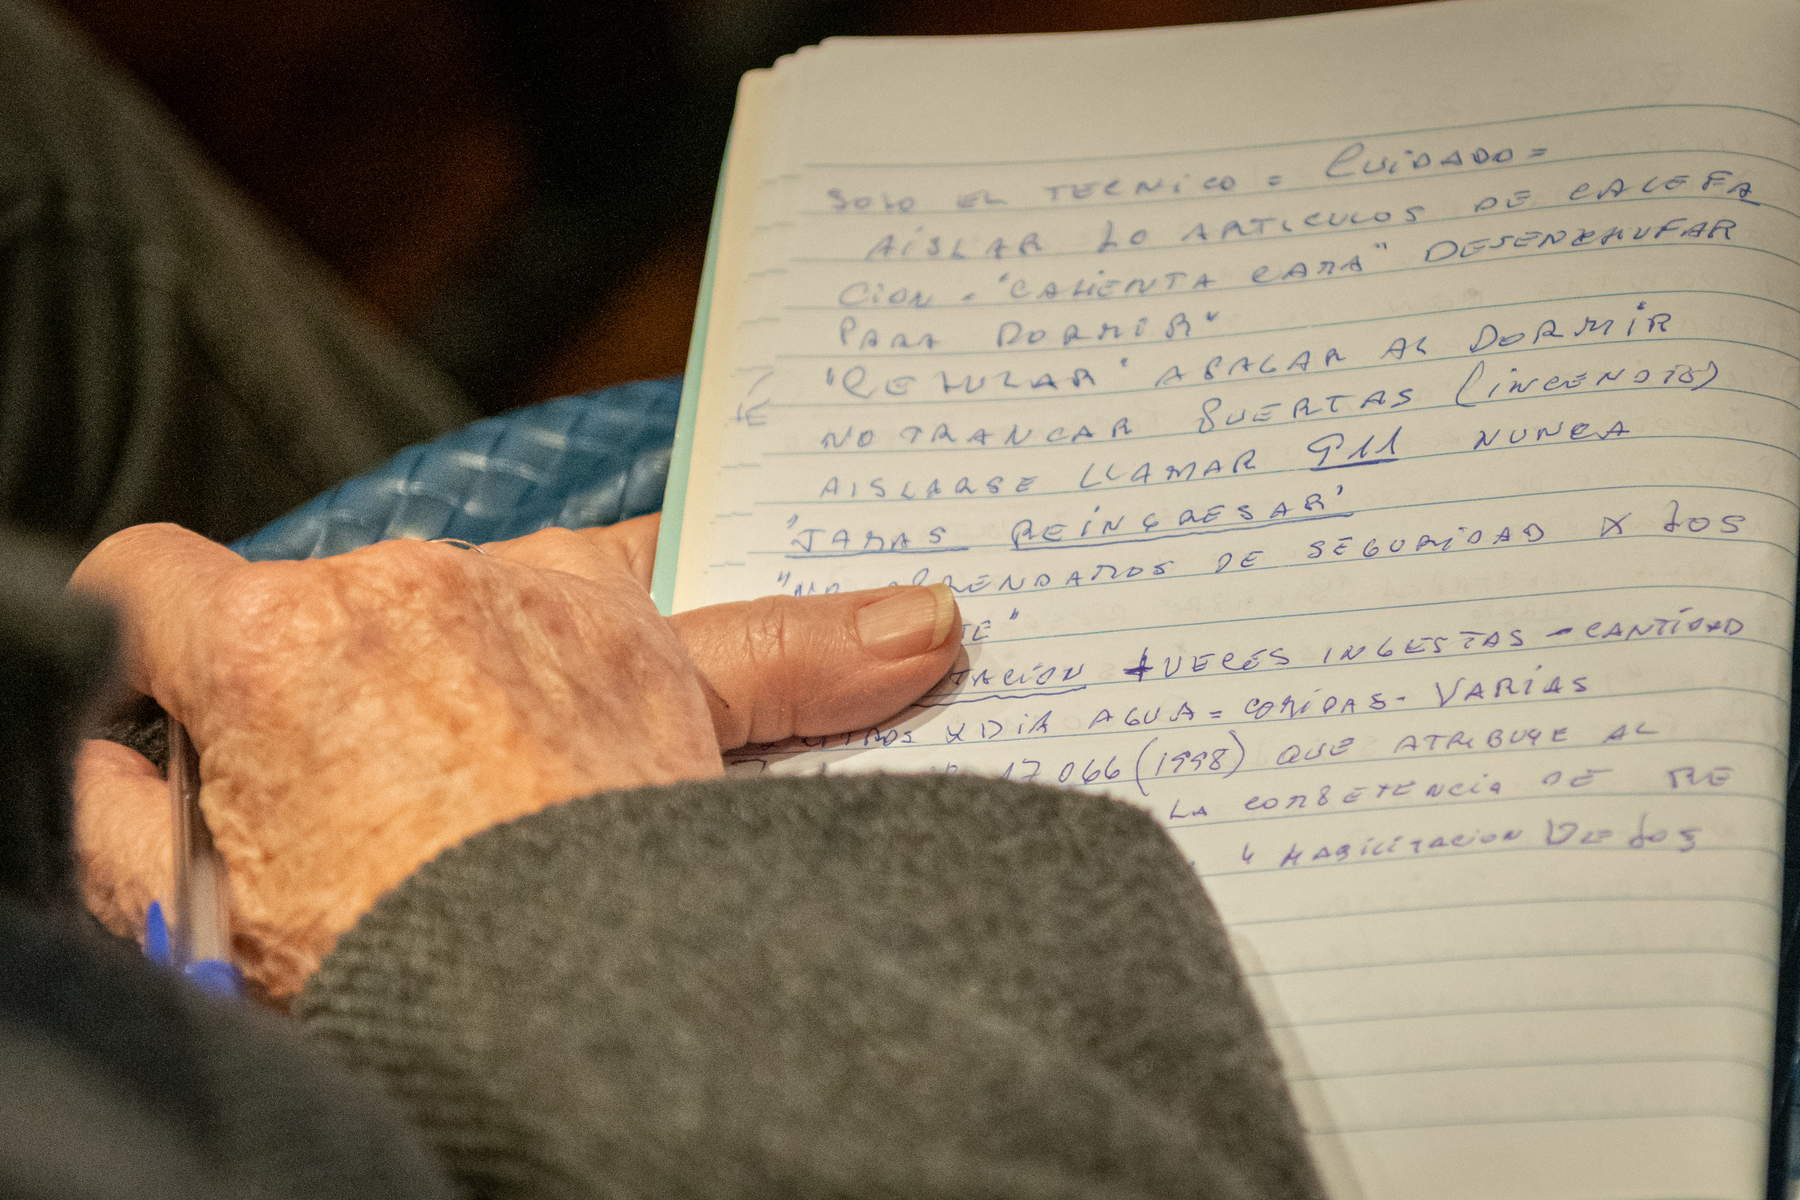 SOLO EL TECNICO = CUIDADO =
AISLAR LO ARTICULOS DE CALEFA
CION - "CALIENTA CAMA" DESENCHUFAR
PARA DORMIR"
APAGAR AL DORMIR
NO TRANCAR PUERTAS (INCENDIO)
AISLARSE LLAMAR 911 NUNCA
"JAMAS REINGRESAR"
DE SEGURIDAD X LOS
TE"
TACION 4 VECES INGESTAS - CANTIDAD
X DIA AGUA = COMIDAS - VARIAS
17066 (1998) QUE ATRIBUYE AL
LA COMPETENCIA DE RE
Y HABILITACION DE LOS